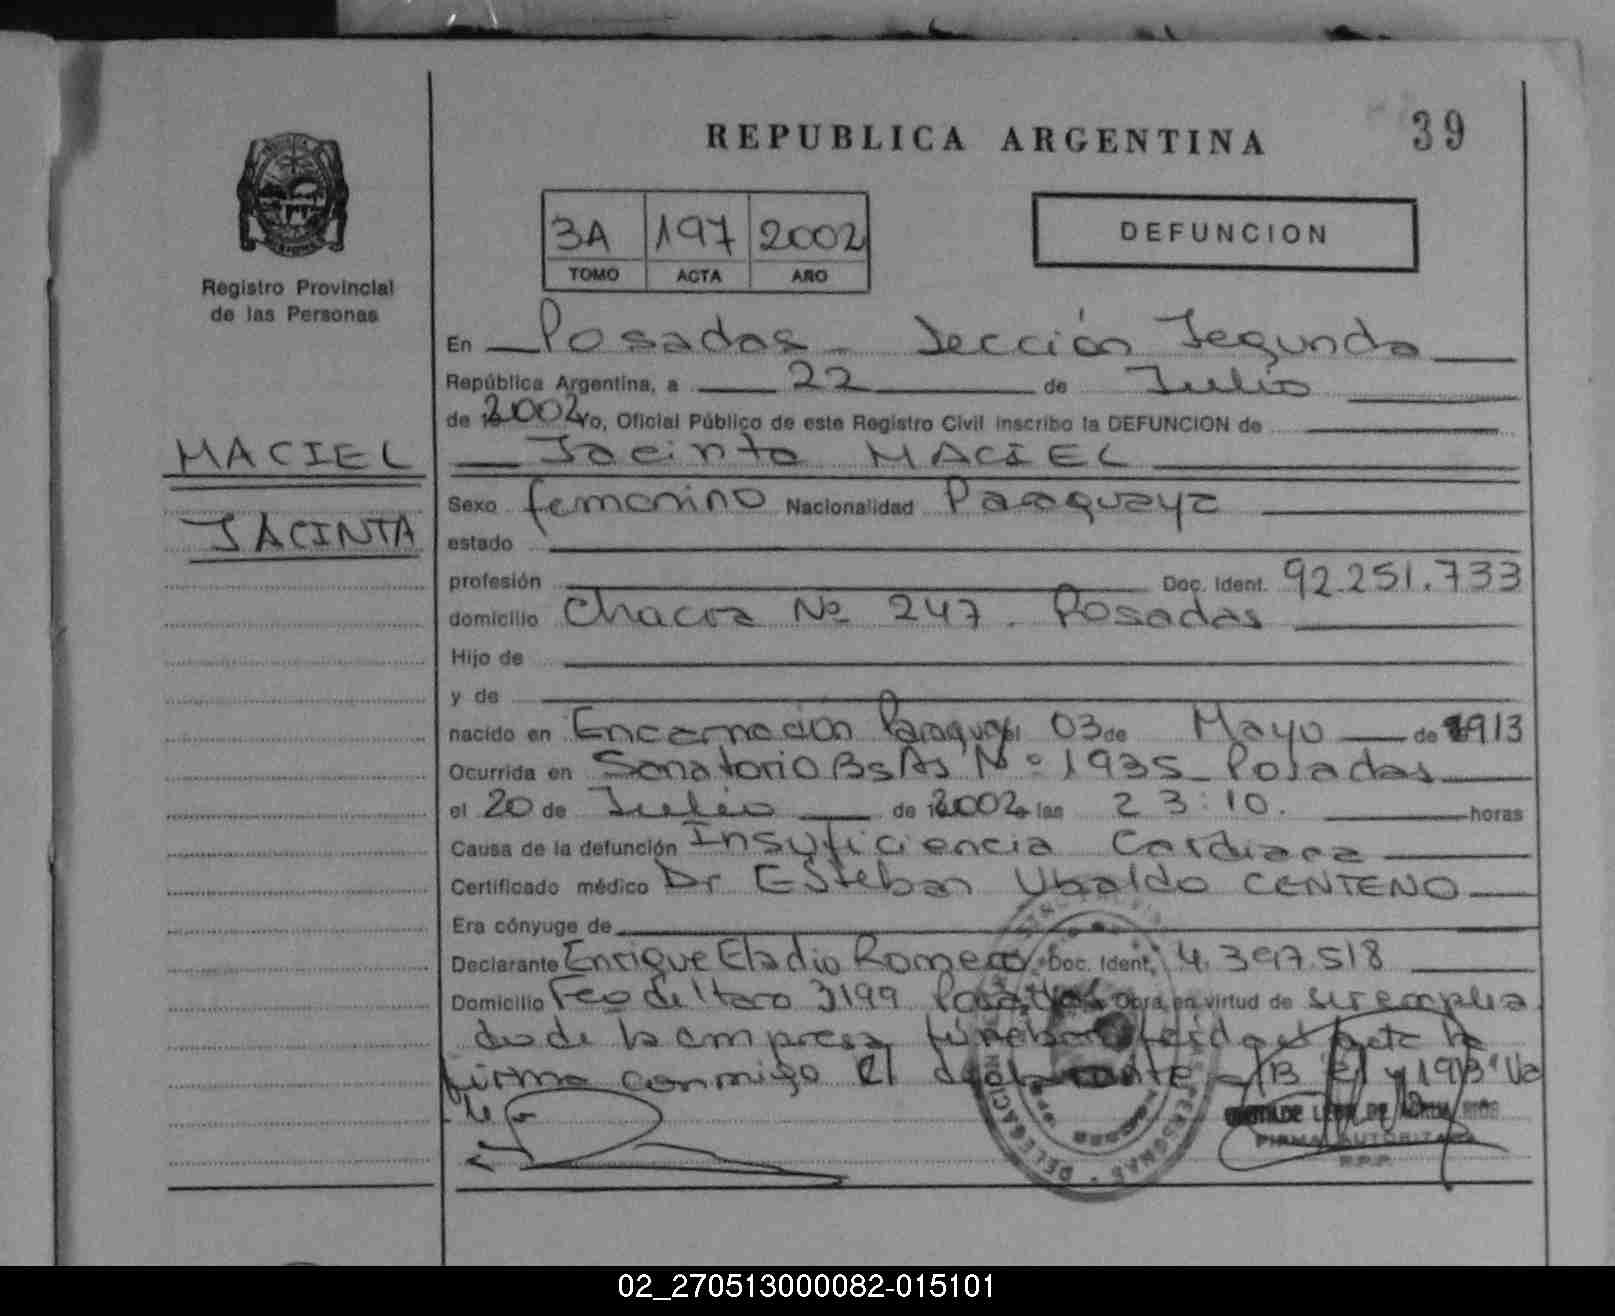 REPUBLICA ARGENTINA
39
3A 197 2002
TOMO ACTA AÑO
DEFUNCION
Registro Provincial
de las Personas
MACIEL
JACINTA
En Posadas - Sección Segunda
República Argentina, a 22 de Julio
de 2002 Yo, Oficial Público de este Registro Civil inscribo la DEFUNCION de
Jacinta MACIEL
Sexo femenino Nacionalidad Paraguaya
estado
profesión Doc. Ident. 92.251.733
domicilio Chacra Nº 247 - Posadas
Hijo de
y de
nacido en Encarnación Paraguay el 03 de Mayo de 1913
Ocurrida en Sanatorio BsAs Nº 1935 - Posadas
el 20 de Julio de 2002 a las 23:10. horas
Causa de la defunción Insuficiencia Cardiaca
Certificado médico Dr Esteban Ubaldo CENTENO
Era cónyuge de
Declarante Enrique Eladio Romero Doc. Ident. 4.397.518
Domicilio Fco de Haro 3199 Posadas Obra en virtud de ser emplea
do de la empresa fúnebre acta la
firma conmigo el declarante - "1913" Va
le
DELEGACION
PERSONAS
FIRMA AUTORIZADA
R.P.P.
02_270513000082-015101